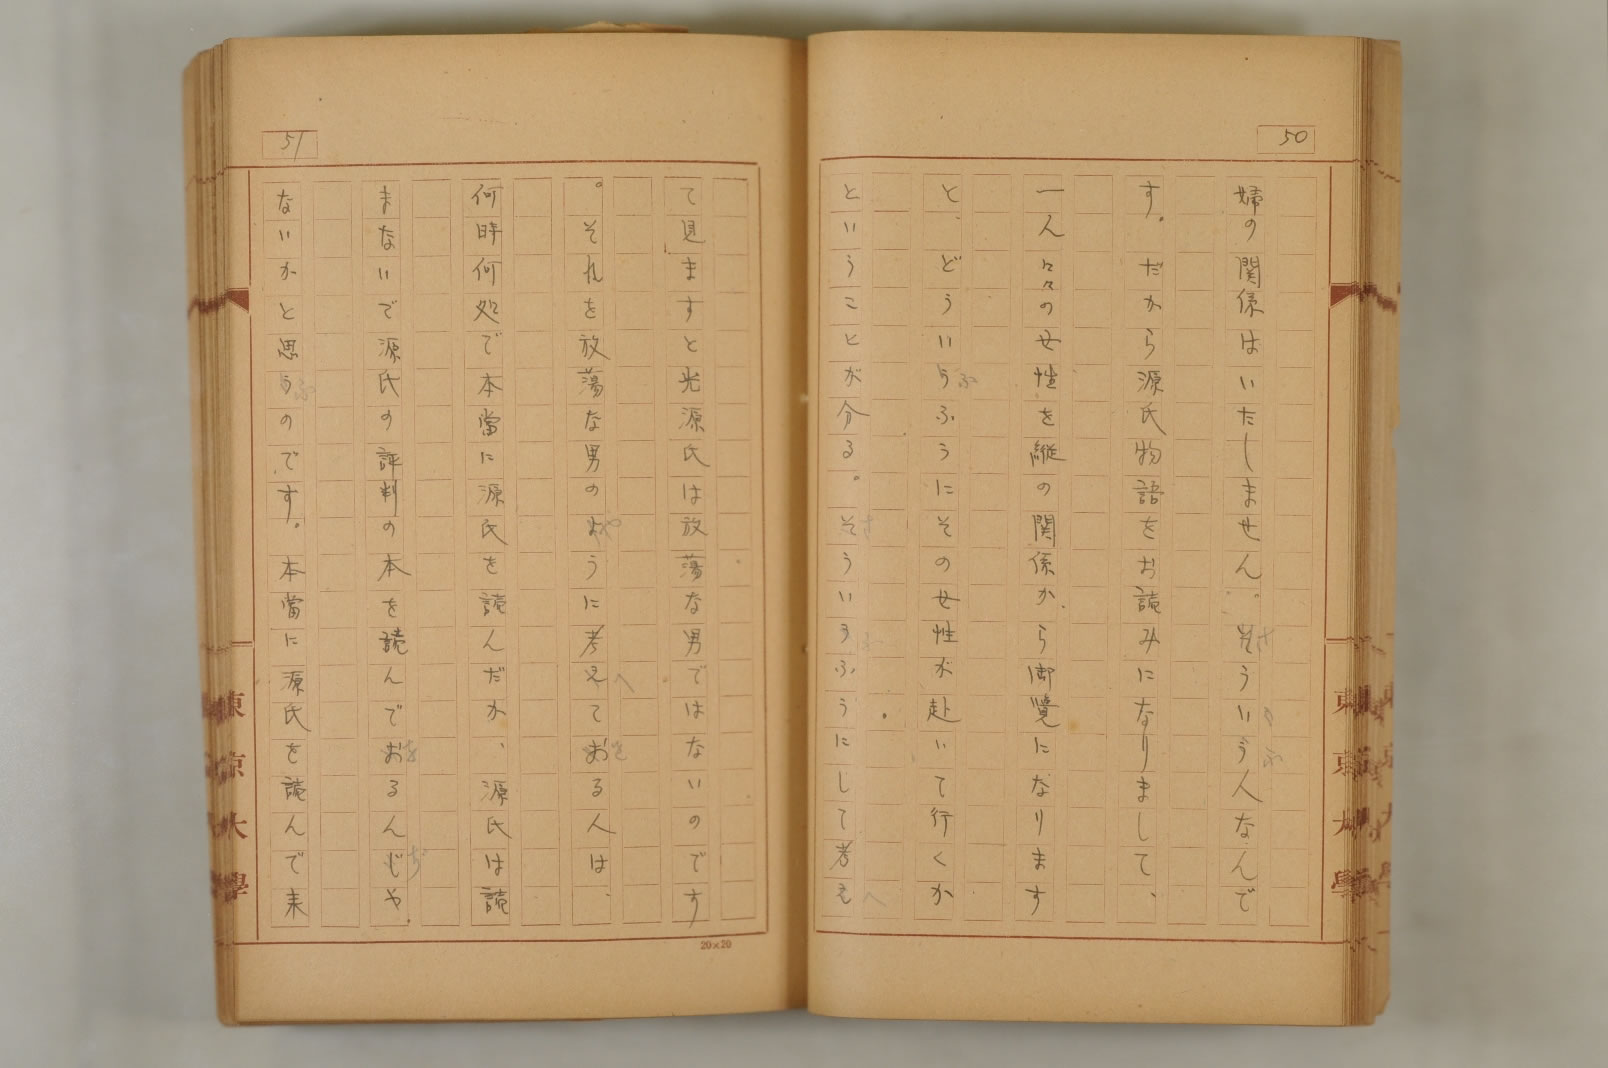 50
婦の関係はいたしません。そういう人なんで
す。だから源氏物語をお読みになりまして、
一人々々の女性を縦の関係から御覧になります
と、どういうふうにその女性が赴いて行くか
ということが分る。そういうふうにして考え
51
て見ますと光源氏は放蕩な男ではないのです
。それを放蕩な男のように考えておる人は、
何時何処で本當に源氏を読んだか、源氏は読
まないで源氏の評判の本を読んでおるんじや
ないかと思うのです。本當に源氏を読んで来
20×20
東京大學
東京大學